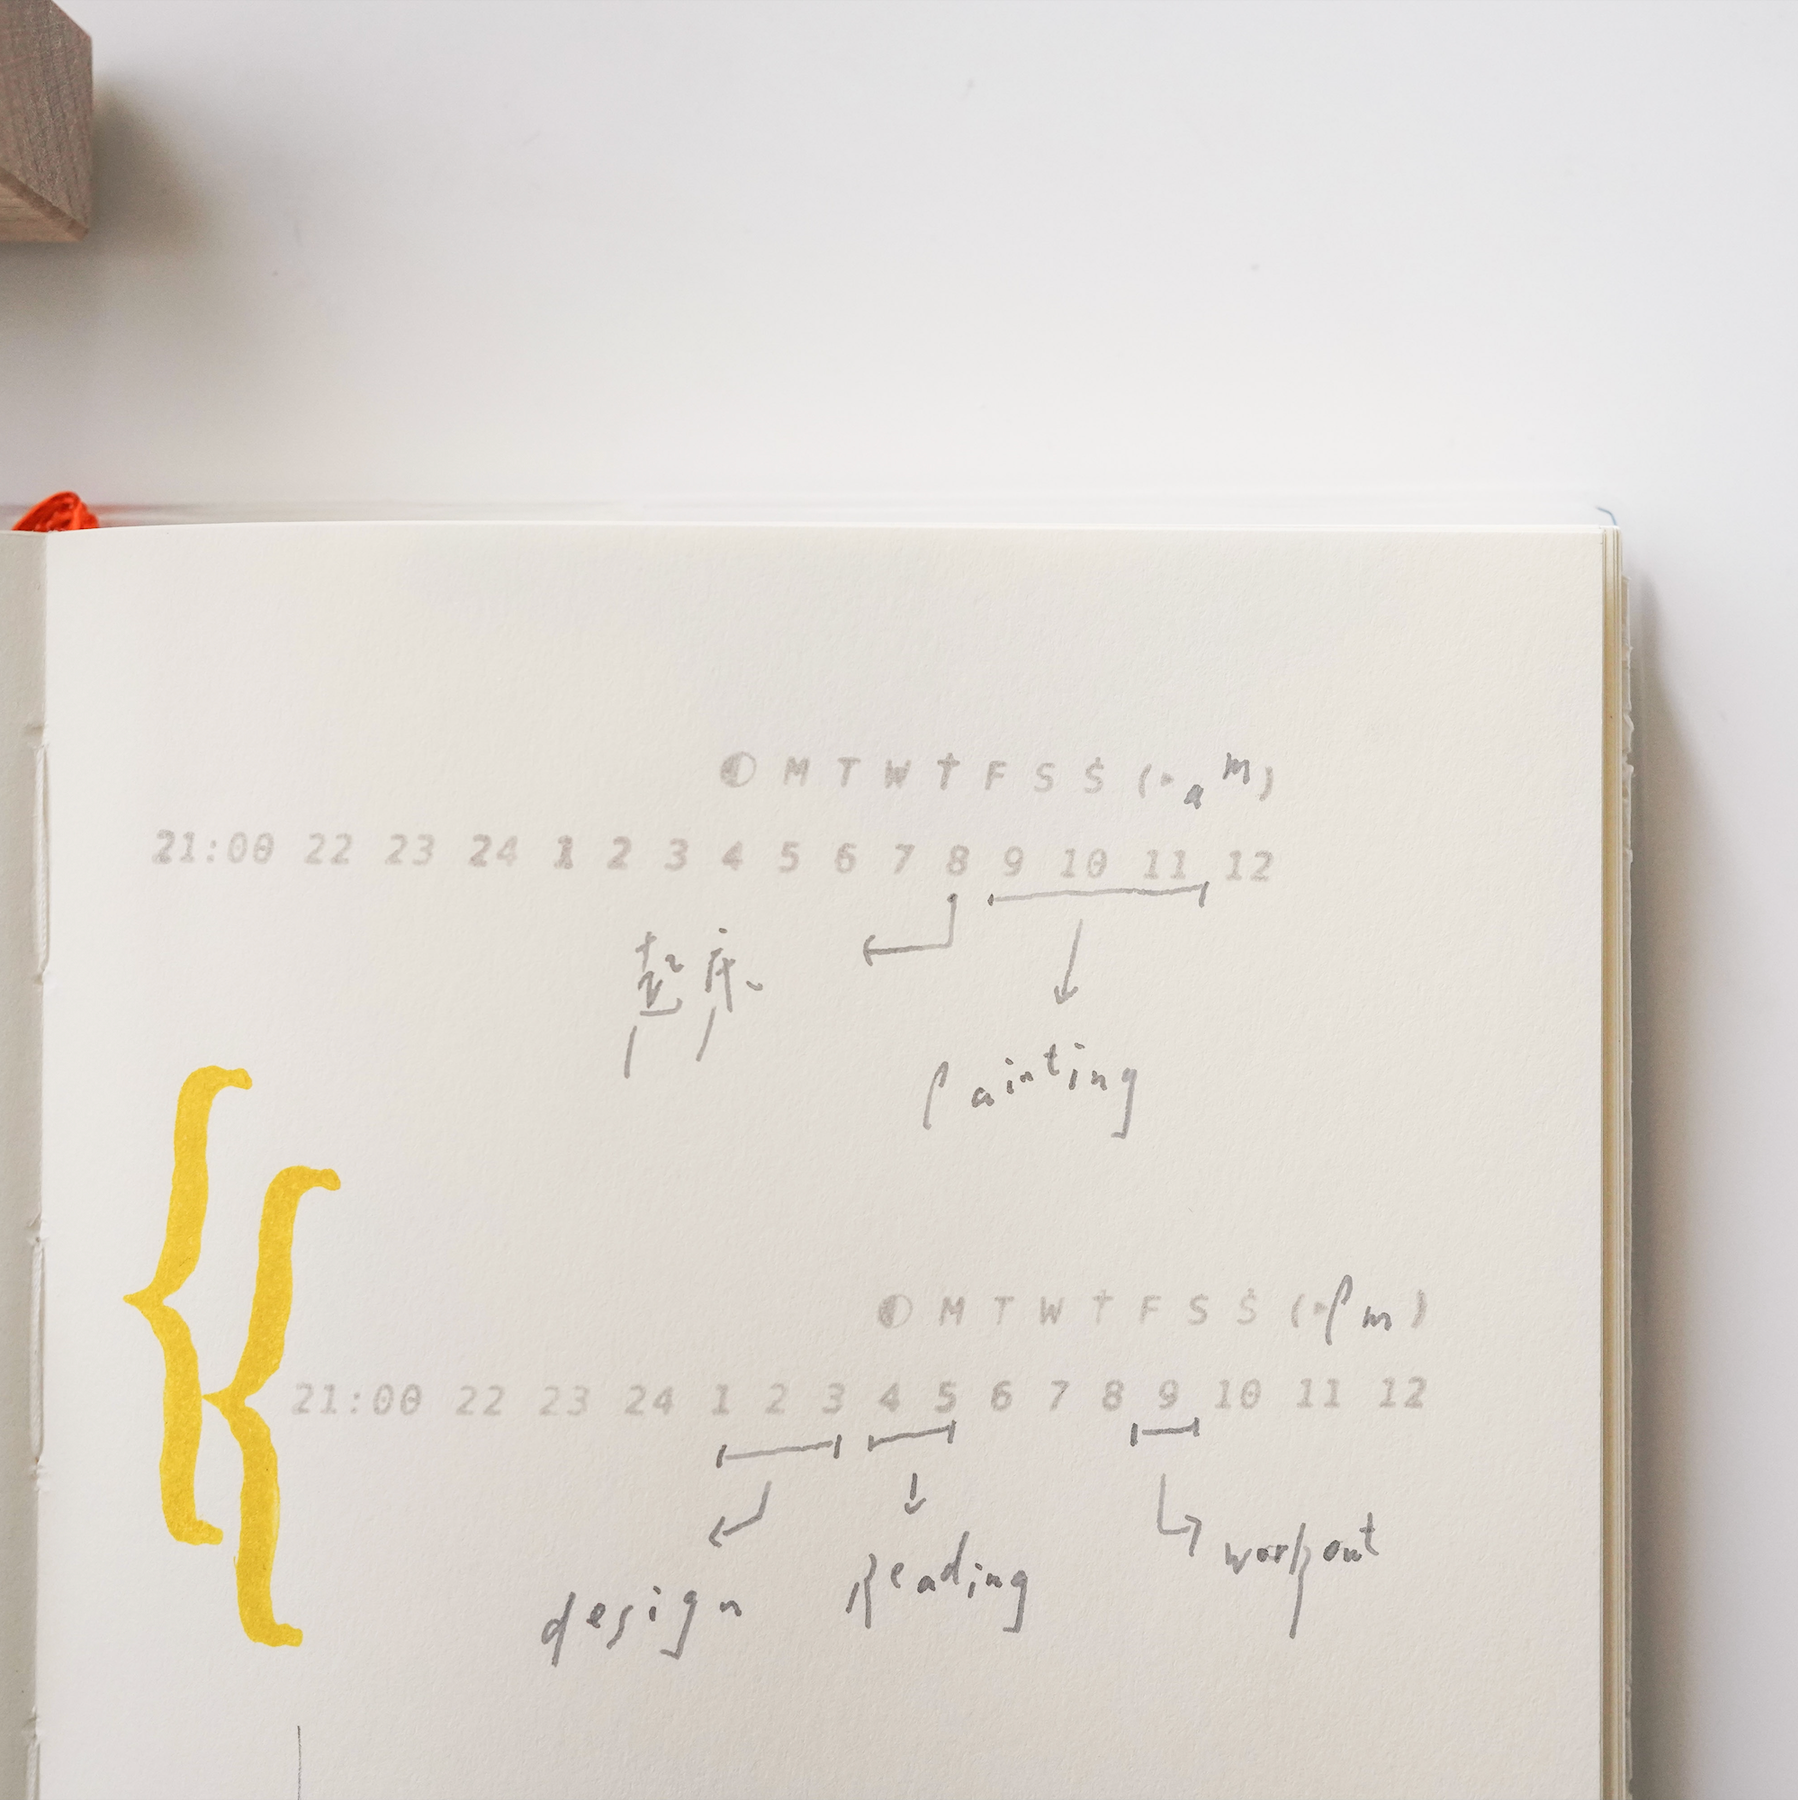 ◐ M T W T F S S (·am)
21:00 22 23 24 1 2 3 4 5 6 7 8 9 10 11 12
起床
painting
◐ M T W T F S S (·pm)
21:00 22 23 24 1 2 3 4 5 6 7 8 9 10 11 12
design Reading workout